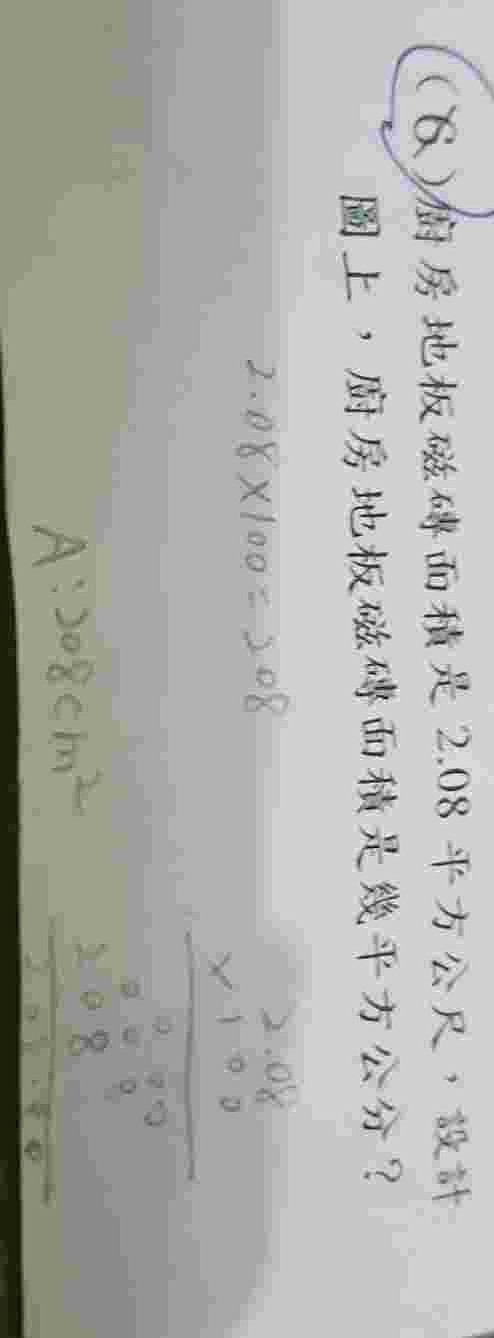 (8)廚房地板磁磚面積是 2.08 平方公尺，設計
圖上，廚房地板磁磚面積是幾平方公分？
2.08×100=208
2.08
×100
000
000
208
A:208cm²